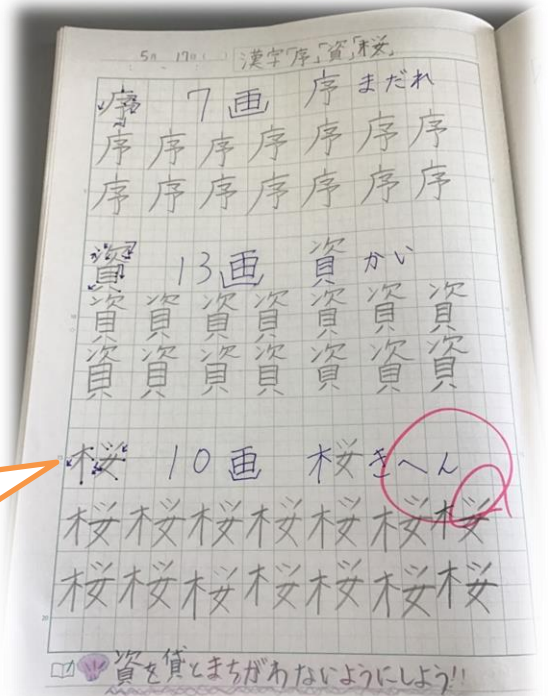 5月 17日( ) 漢字「序」「資」「桜」
序 7画 序 まだれ
序 序 序 序 序 序 序
序 序 序 序 序 序 序
資 13画 資 かい
資 資 資 資 資 資 資
資 資 資 資 資 資 資
桜 10画 桜 きへん
桜 桜 桜 桜 桜 桜 桜
桜 桜 桜 桜 桜 桜 桜
資を貸とまちがわないようにしよう!!